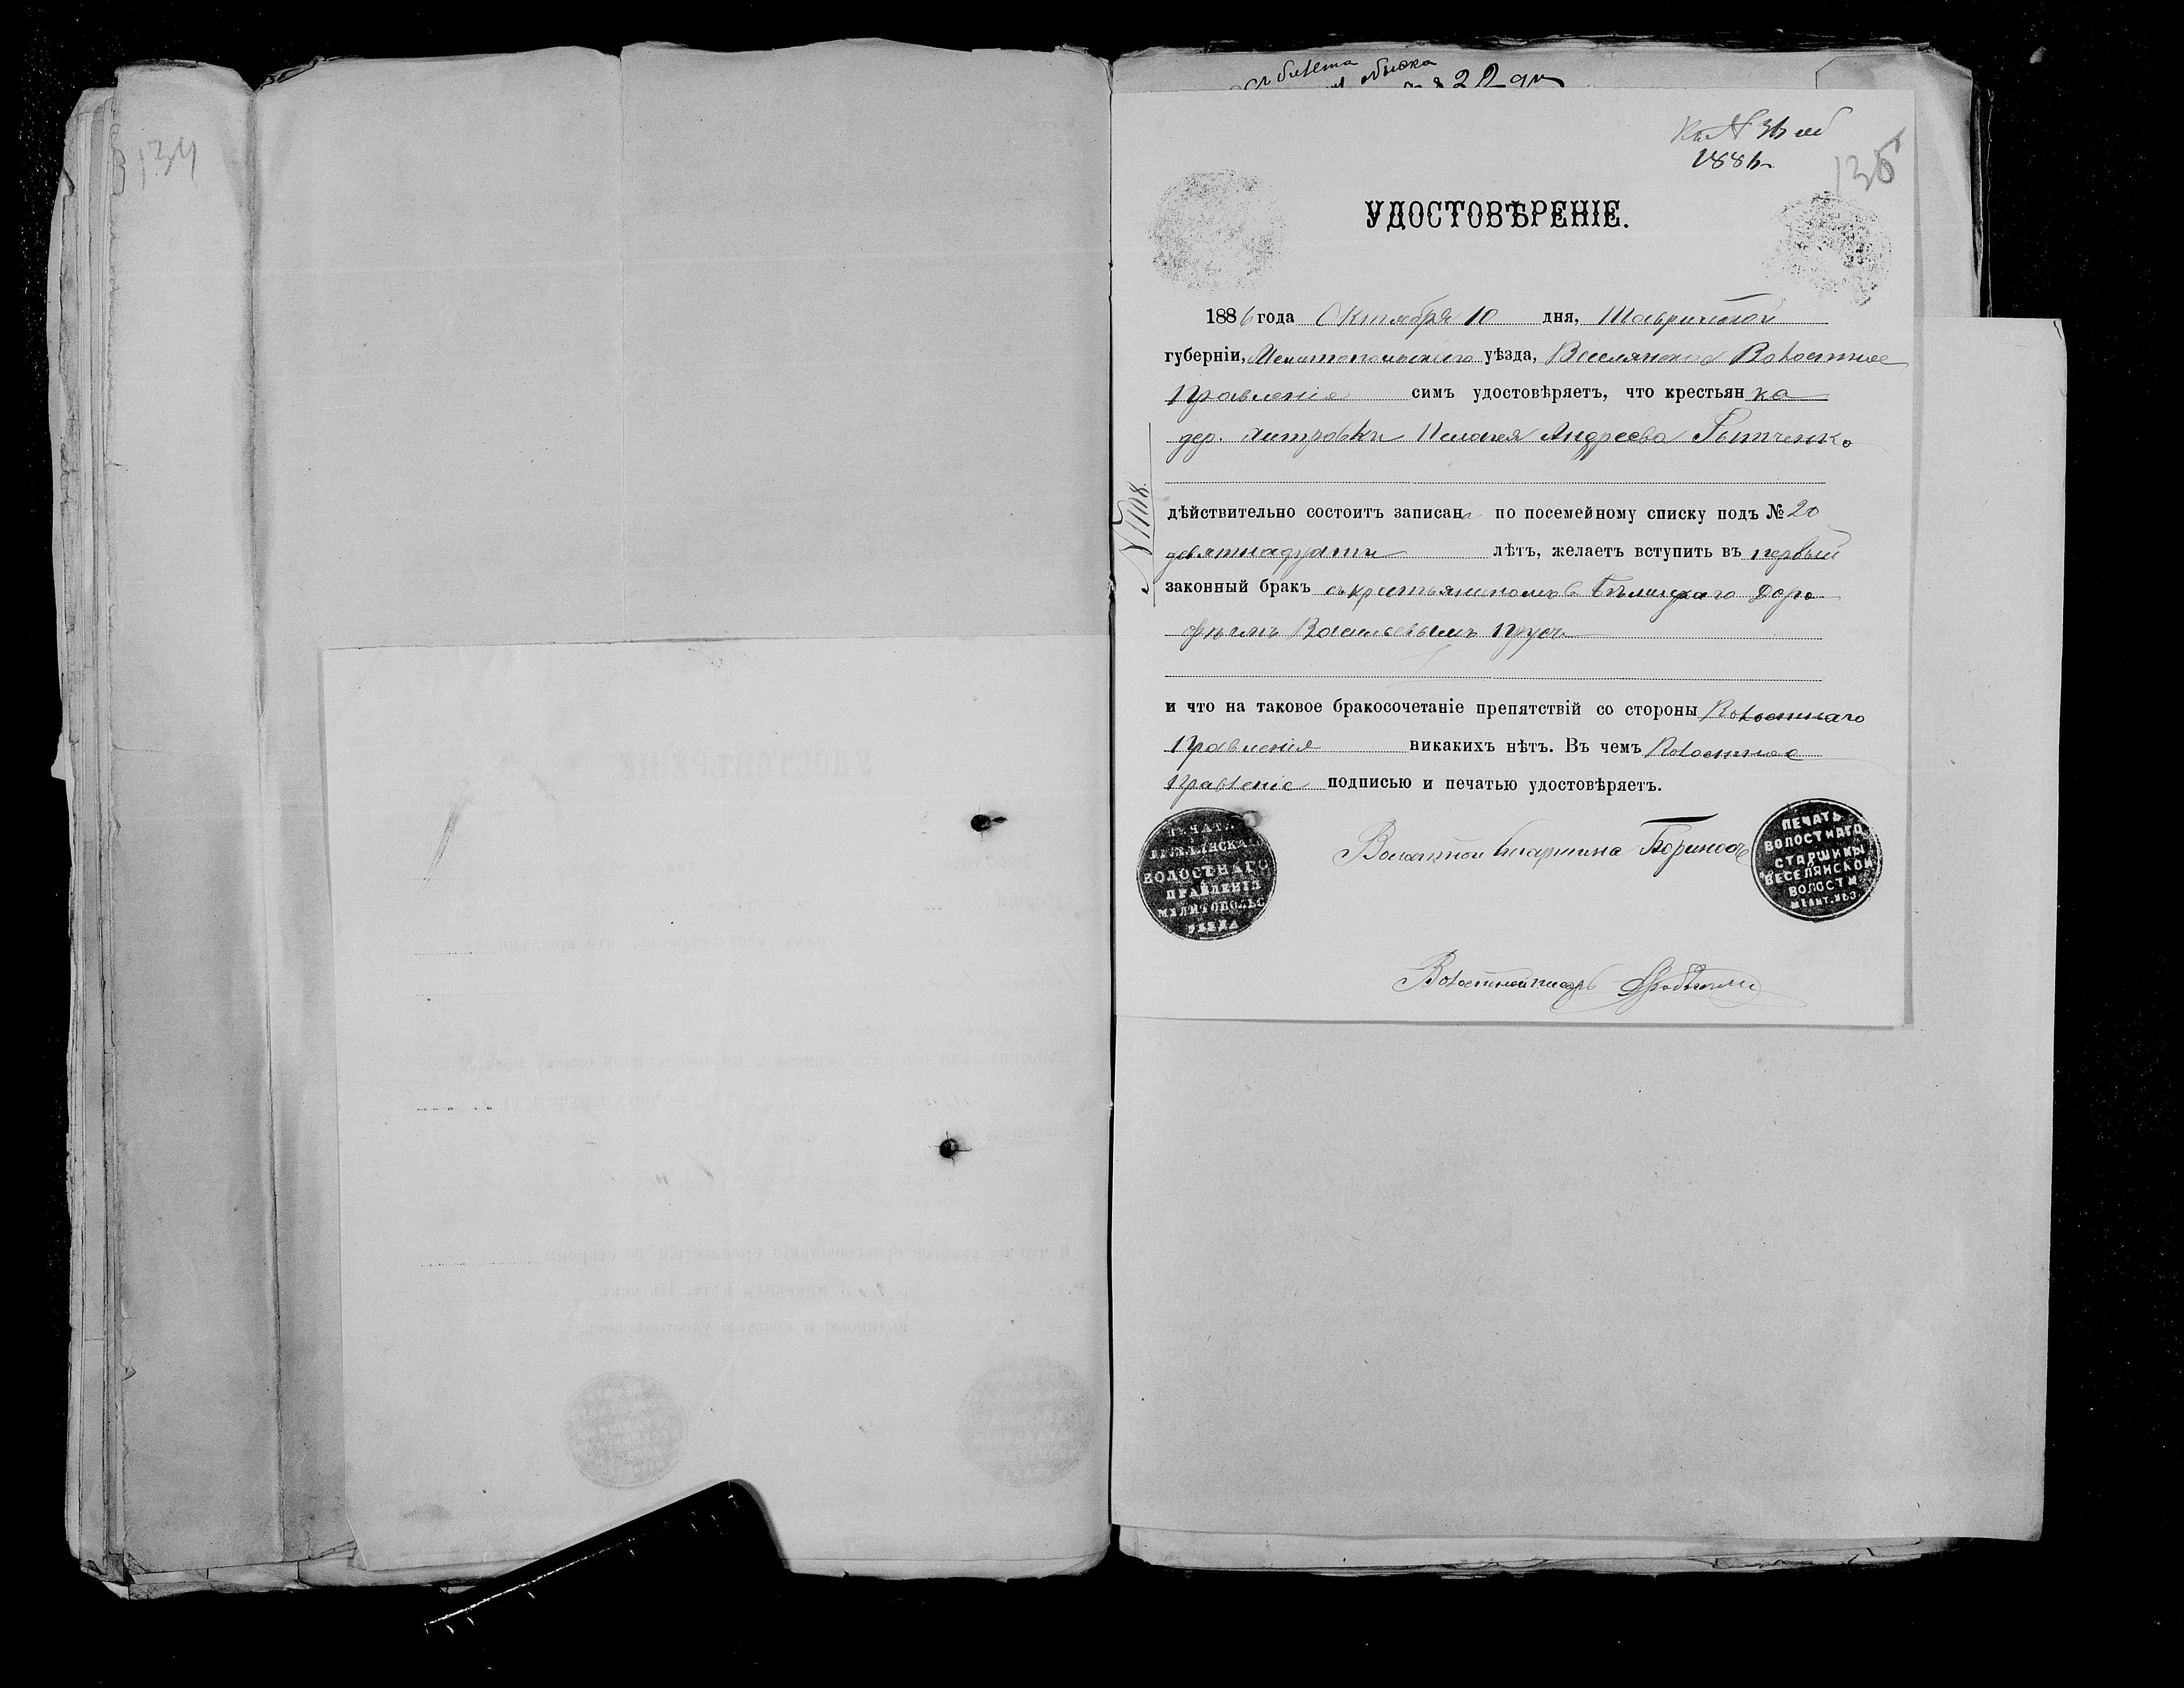 134
билета обыска
Къ № 36 об
1886 г.
135
УДОСТОВѢРЕНІЕ.
1886 года Октября 10 дня, Таврической
губерніи, Мелитопольскаго уѣзда, Веселянское Волостное
Правленіе симъ удостовѣряетъ, что крестьянка
дер. Пелагея Андреева
дѣйствительно состоитъ записана по посемейному списку подъ № 20
девятнадцати лѣтъ, желаетъ вступить въ первый
законный бракъ съ крестьяниномъ Доро
фѣемъ Васильевымъ
и что на таковое бракосочетаніе препятствій со стороны Волостнаго
Правленія никакихъ нѣтъ. Въ чемъ Волостное
Правленіе подписью и печатью удостовѣряетъ.
№ 1108.
Волостной Старшина
ПЕЧАТЬ
ВЕСЕЛЯНСКАГО
ВОЛОСТНАГО
ПРАВЛЕНІЯ
МЕЛИТОПОЛЬС
УѢЗДА
ПЕЧАТЬ
ВОЛОСТНАГО
СТАРШИНЫ
ВЕСЕЛЯНСКОЙ
ВОЛОСТИ
МЕЛИТ. УѢЗ.
Волостной писарь